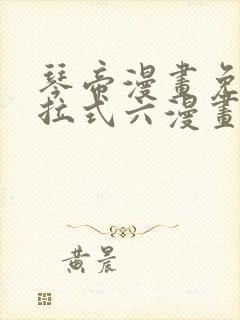 琴帝漫畫免
拉式六漫畫
黃晨